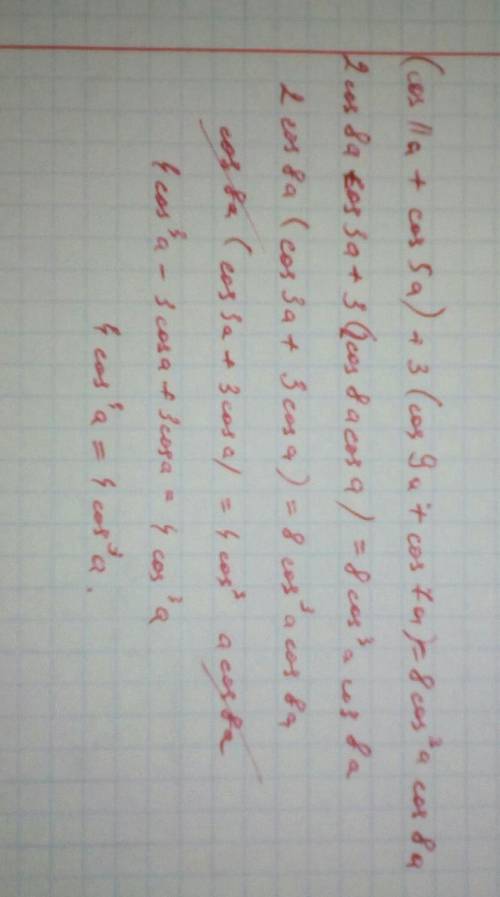 (cos 11a + cos 5a) + 3 (cos 9a + cos 7a) = 8 cos³ a cos 8a
2 cos 8a cos 3a + 3 (2cos 8a cos a) = 8 cos³ a cos 8a
2 cos 8a (cos 3a + 3 cos a) = 8 cos³ a cos 8a
cos 8a (cos 3a + 3 cos a) = 4 cos³ a cos 8a
4 cos³ a - 3 cos a + 3 cos a = 4 cos³ a
4 cos³ a = 4 cos³ a.